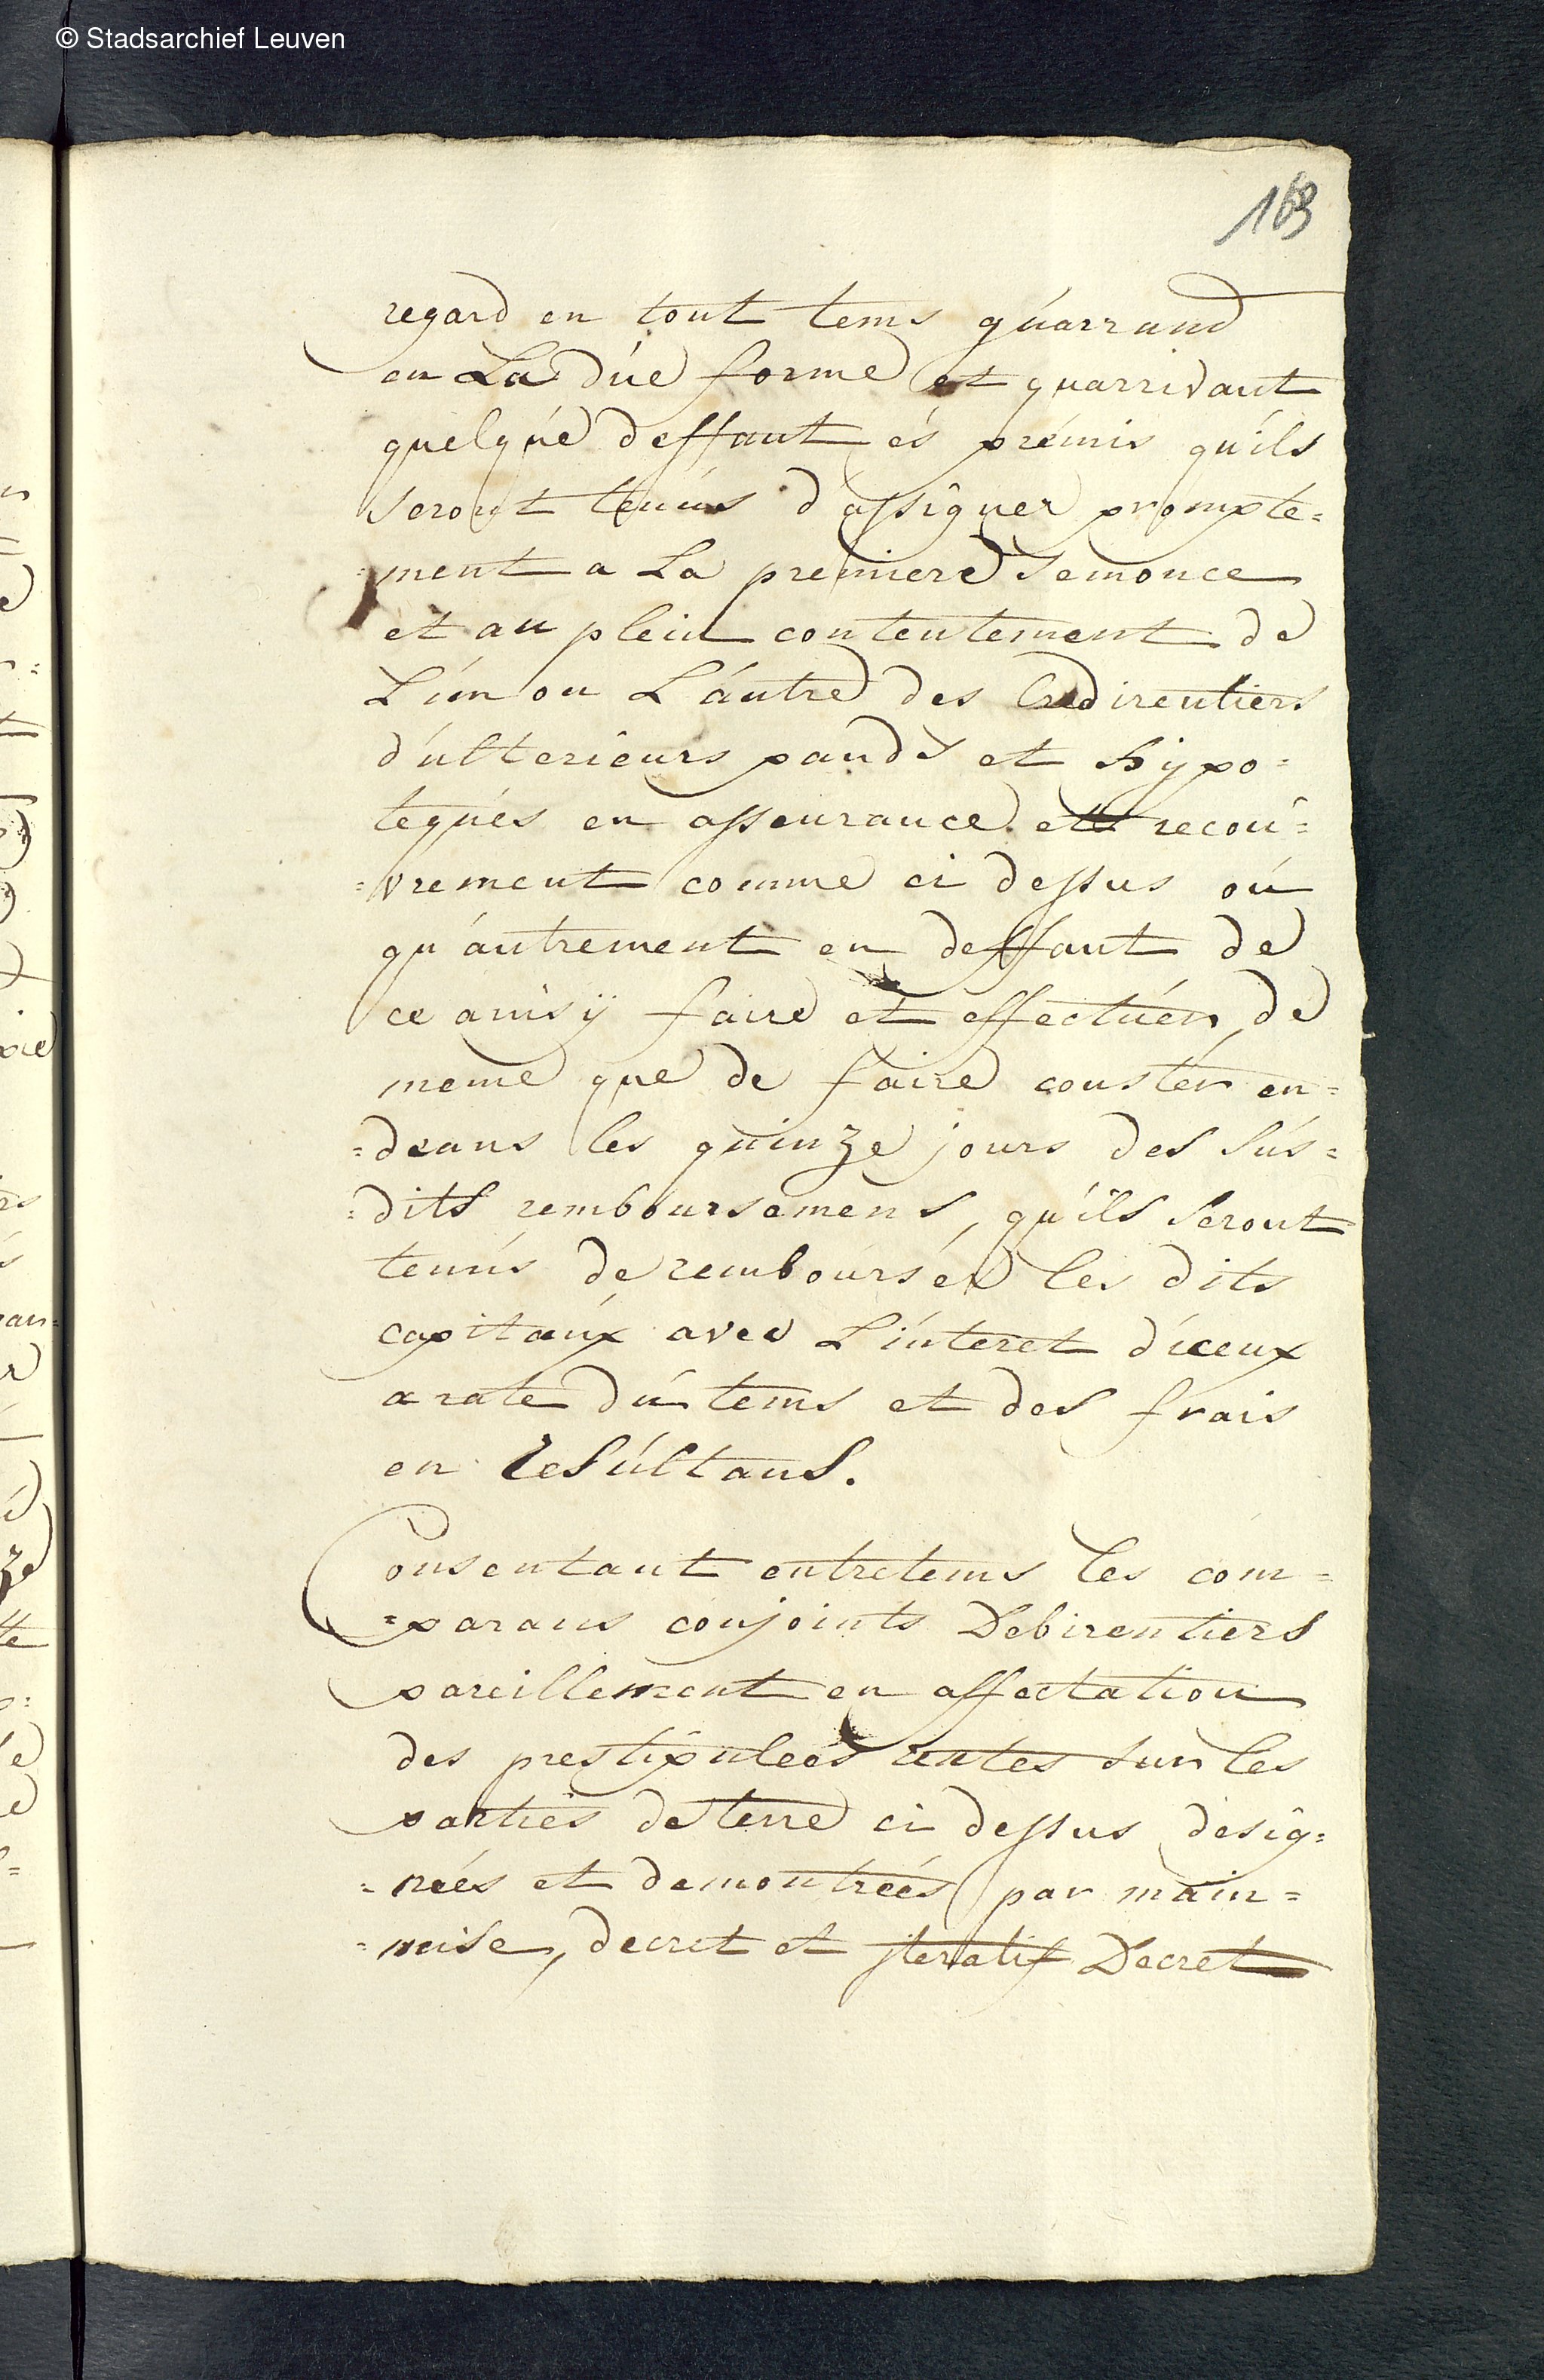 © Stadsarchief Leuven
169
regard en tout tems guarrand
en La düe forme et quarrivant
quelque deffaut és prémis quils
seront tenus d'assigner prompte=
=ment a La premiere Semonce
et au plein contentement de
L'un ou L'autre des Credirentiers
d'ulterieurs pands et hijpo=
teques en asseurance et recou=
=vrement comme ci dessus ou
qu'autrement en deffaut de
ce ainsÿ faire et effectuer, de
meme que de faire couster en=
=deans les quinze jours des sus=
=dits remboursemens, qu'ils seront
tenus de rembourser les dits
capitaux avec L'interet d'iceux
a rate du tems et des frais
en resultans.
Consentant entretems les com=
=parans conjoints Debirentiers
pareillement en affectation
des prestipuleés rentes sur les
parties de terre ci dessus desig=
=neés et demontreés par main=
=mise, decret et iteratif Decret